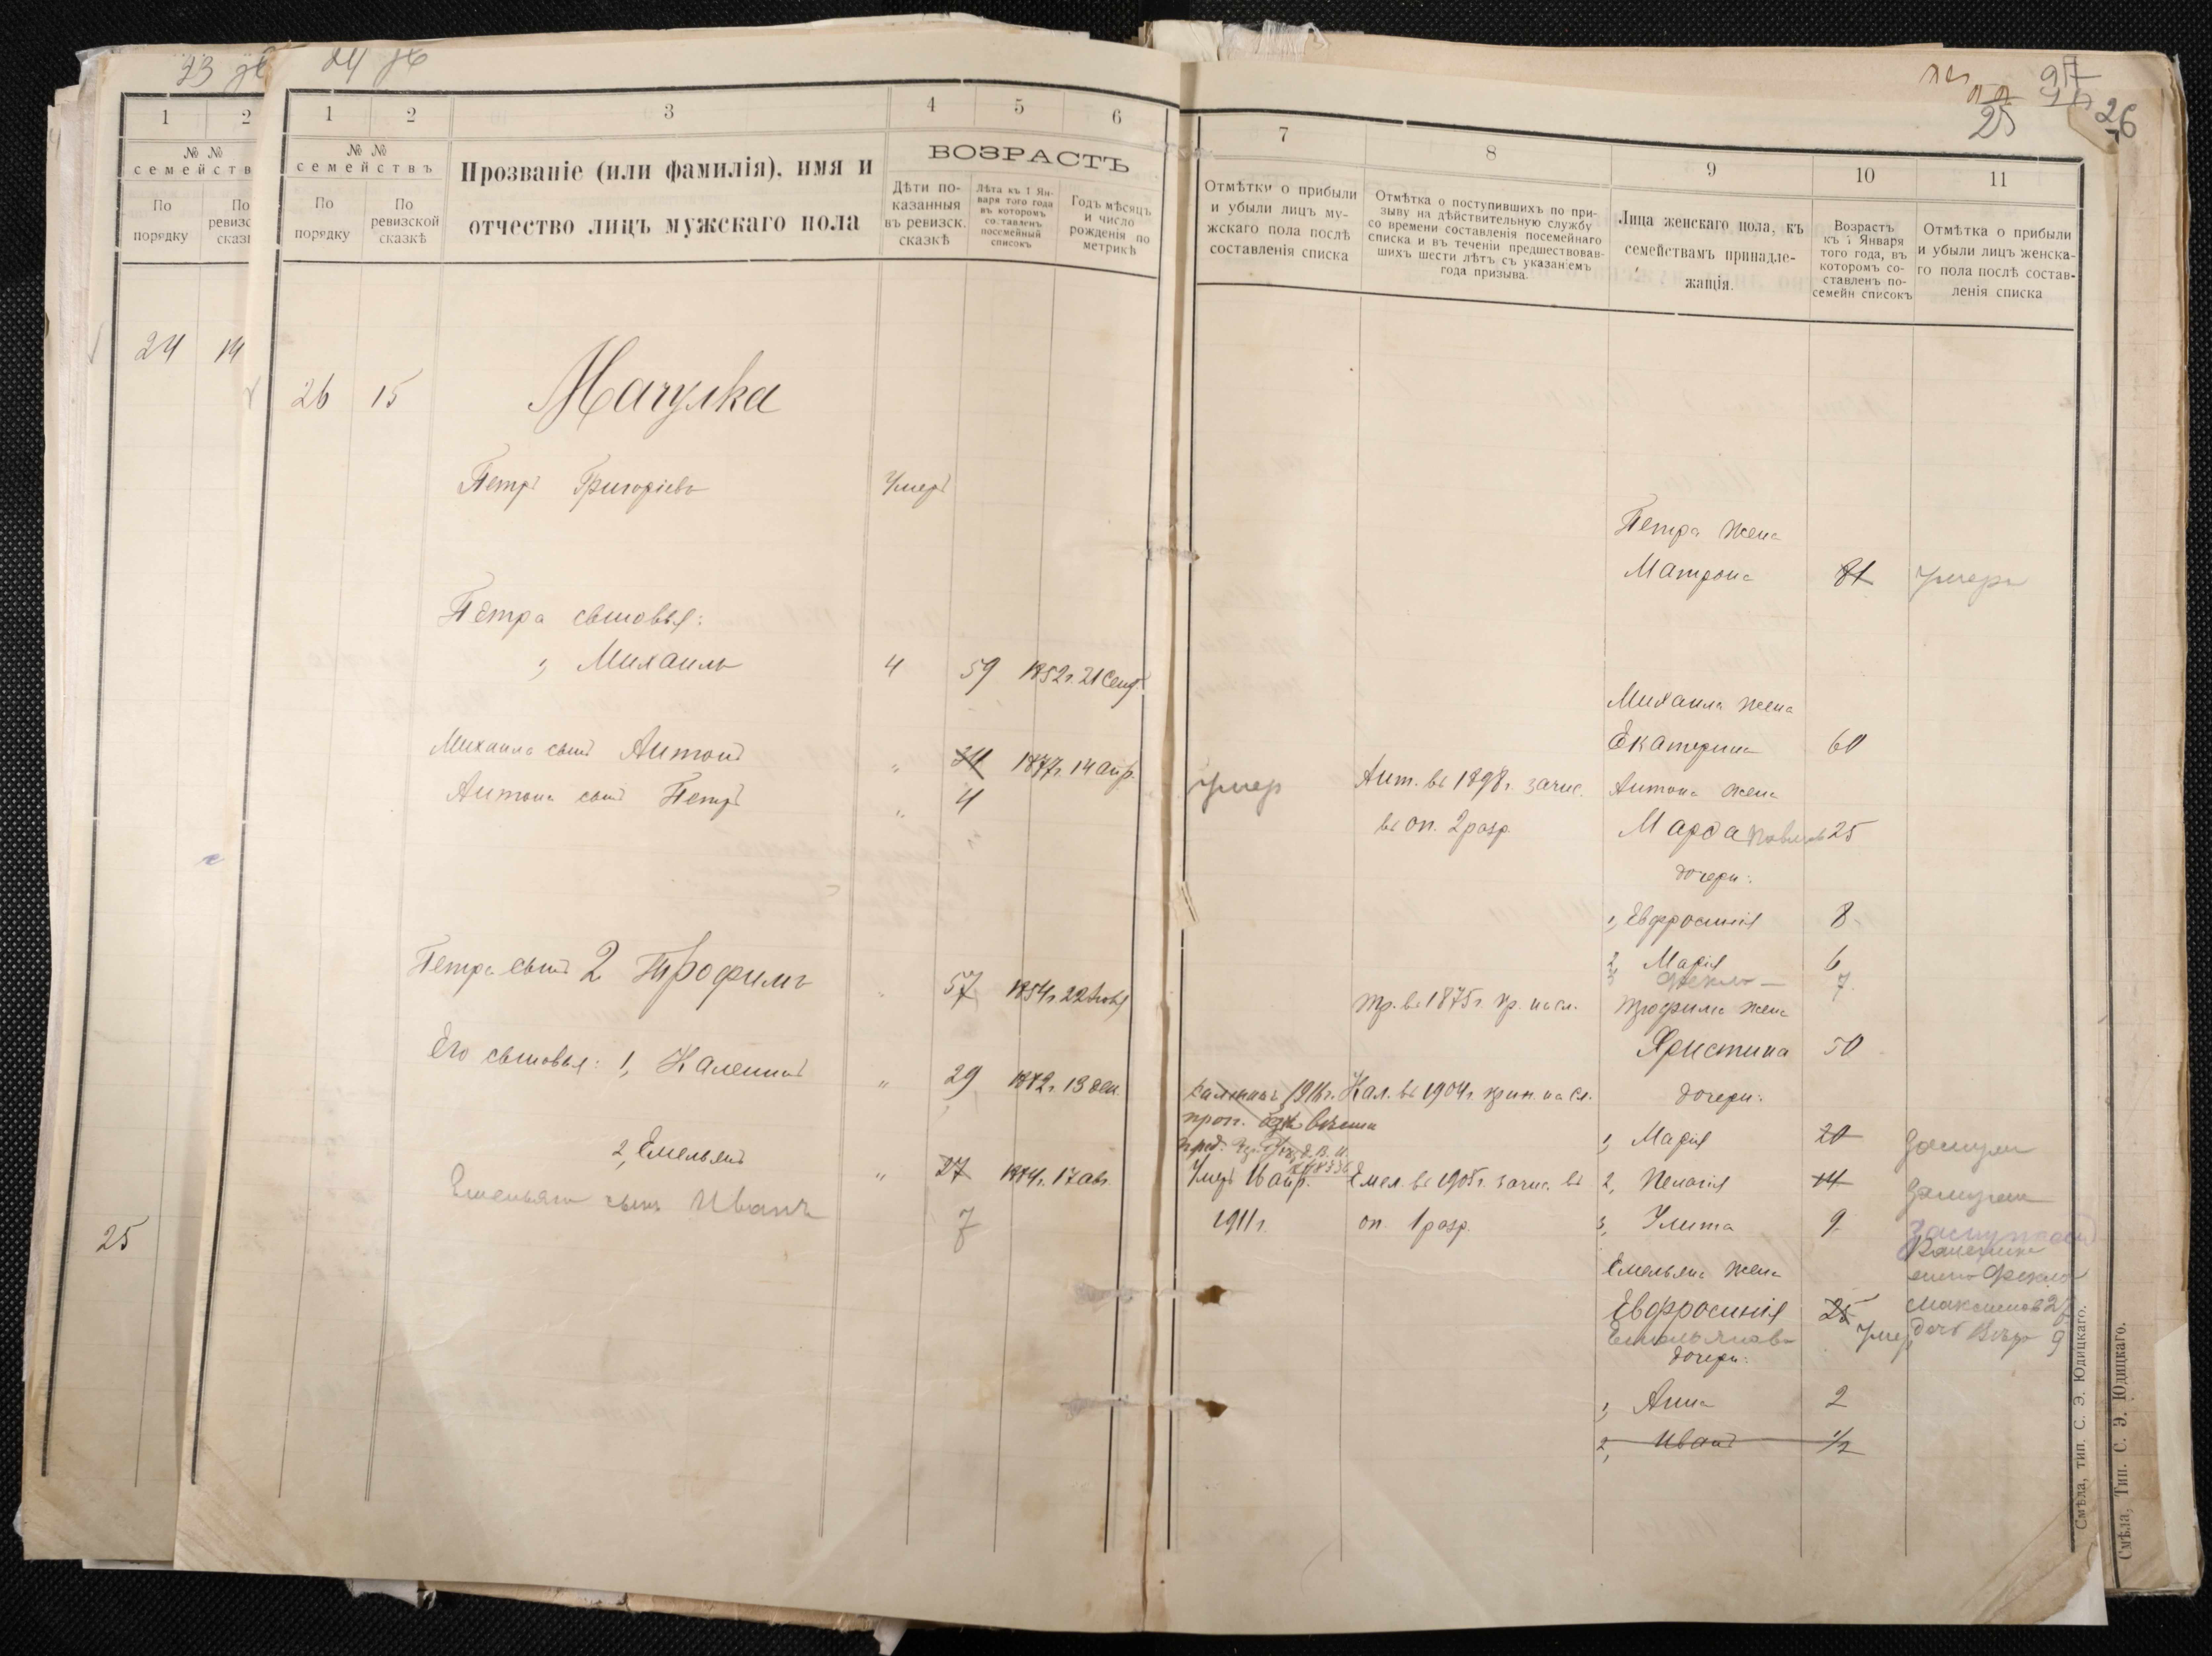 23 
24 
25
26
1
2
№ №
семейств
По
порядку
24
14
25
1
2
3
4
5
6
№ №
семействъ
По
порядку
По
ревизской
сказкѣ
Прозваніе (или фамилія), имя и
отчество лицъ мужскаго пола
ВОЗРАСТЪ
Дѣти по-
казанныя
въ ревизск.
сказкѣ
Лѣта къ 1 Ян-
варя того года
въ которомъ
составленъ
посемейный
списокъ
Годъ мѣсяцъ
и число
рожденія по
метрикѣ
26 15 Мачулка
Петръ Григорьевъ Умеръ
Петра сыновья:
1, Михаилъ 4 59 1852г. 21 Сент.
Михаила сынъ Антонъ " 34 1877г. 14 апр.
Антона сынъ Петръ " 4
Петра сынъ 2 Трофимъ " 57 1854г.
Его сыновья: 1, Каленикъ " 29
2, Емельянъ " 27 17 авг.
Емельяна сынъ Иванъ 7
7
8
9
10
11
Отмѣтки о прибыли
и убыли лицъ му-
жскаго пола послѣ
составленія списка
Отмѣтка о поступившихъ по при-
зыву на дѣйствительную службу
со времени составленія посемейнаго
списка и въ теченіи предшествовав-
шихъ шести лѣтъ съ указаніемъ
года призыва.
Лица женскаго пола, къ
семействамъ принадле-
жащія.
Возрастъ
къ 1 Января
того года, въ
которомъ со-
ставленъ по-
семейн списокъ
Отмѣтка о прибыли
и убыли лицъ женска-
го пола послѣ состав-
ленія списка
Петра жена
Матрона 81 умерла
Михаила жена
Екатерина 60
умер Ант. въ 1898г. зачис. Антона жена
въ оп. 2 разр. Марфа 25
дочери:
1, Евфросинія 8
2 Марія 6
3 Фекла 7
Тр. въ 1875г. пр. на сл. Трофима жена
Христина 50
1916г. Кал. въ 1904г. прин. на сл. дочери:
1, Марія 20 замужем
Умеръ 11 апр. Емел. въ 1905г. зачис. въ 2, Пелагія 14 замужем
1911г. оп. 1 разр. 3, Улита 9 замужем
Каленика
жена Фекла
Емельяна жена
Евфросинія 25 умер
дочь Вѣра 9
дочери:
1, Анна 2
2, Иванъ 1/2
Смѣла, тип. С. Э. Юдицкаго.
Смѣла, Тип. С. Э. Юдицкаго.